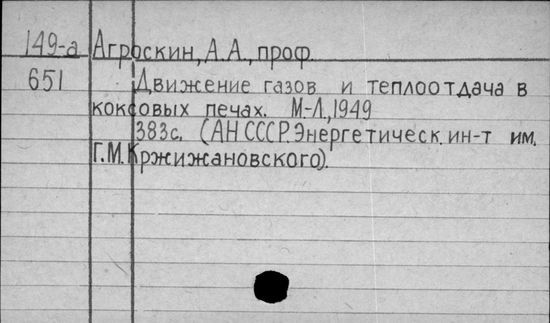 149-а Агроскин, А.А., проф.
651 Движение газов и теплоотдача в
коксовых печах. М-Л., 1949
383с. (АН СССР. Энергетическ. ин-т им.
Г.М. Кржижановского).